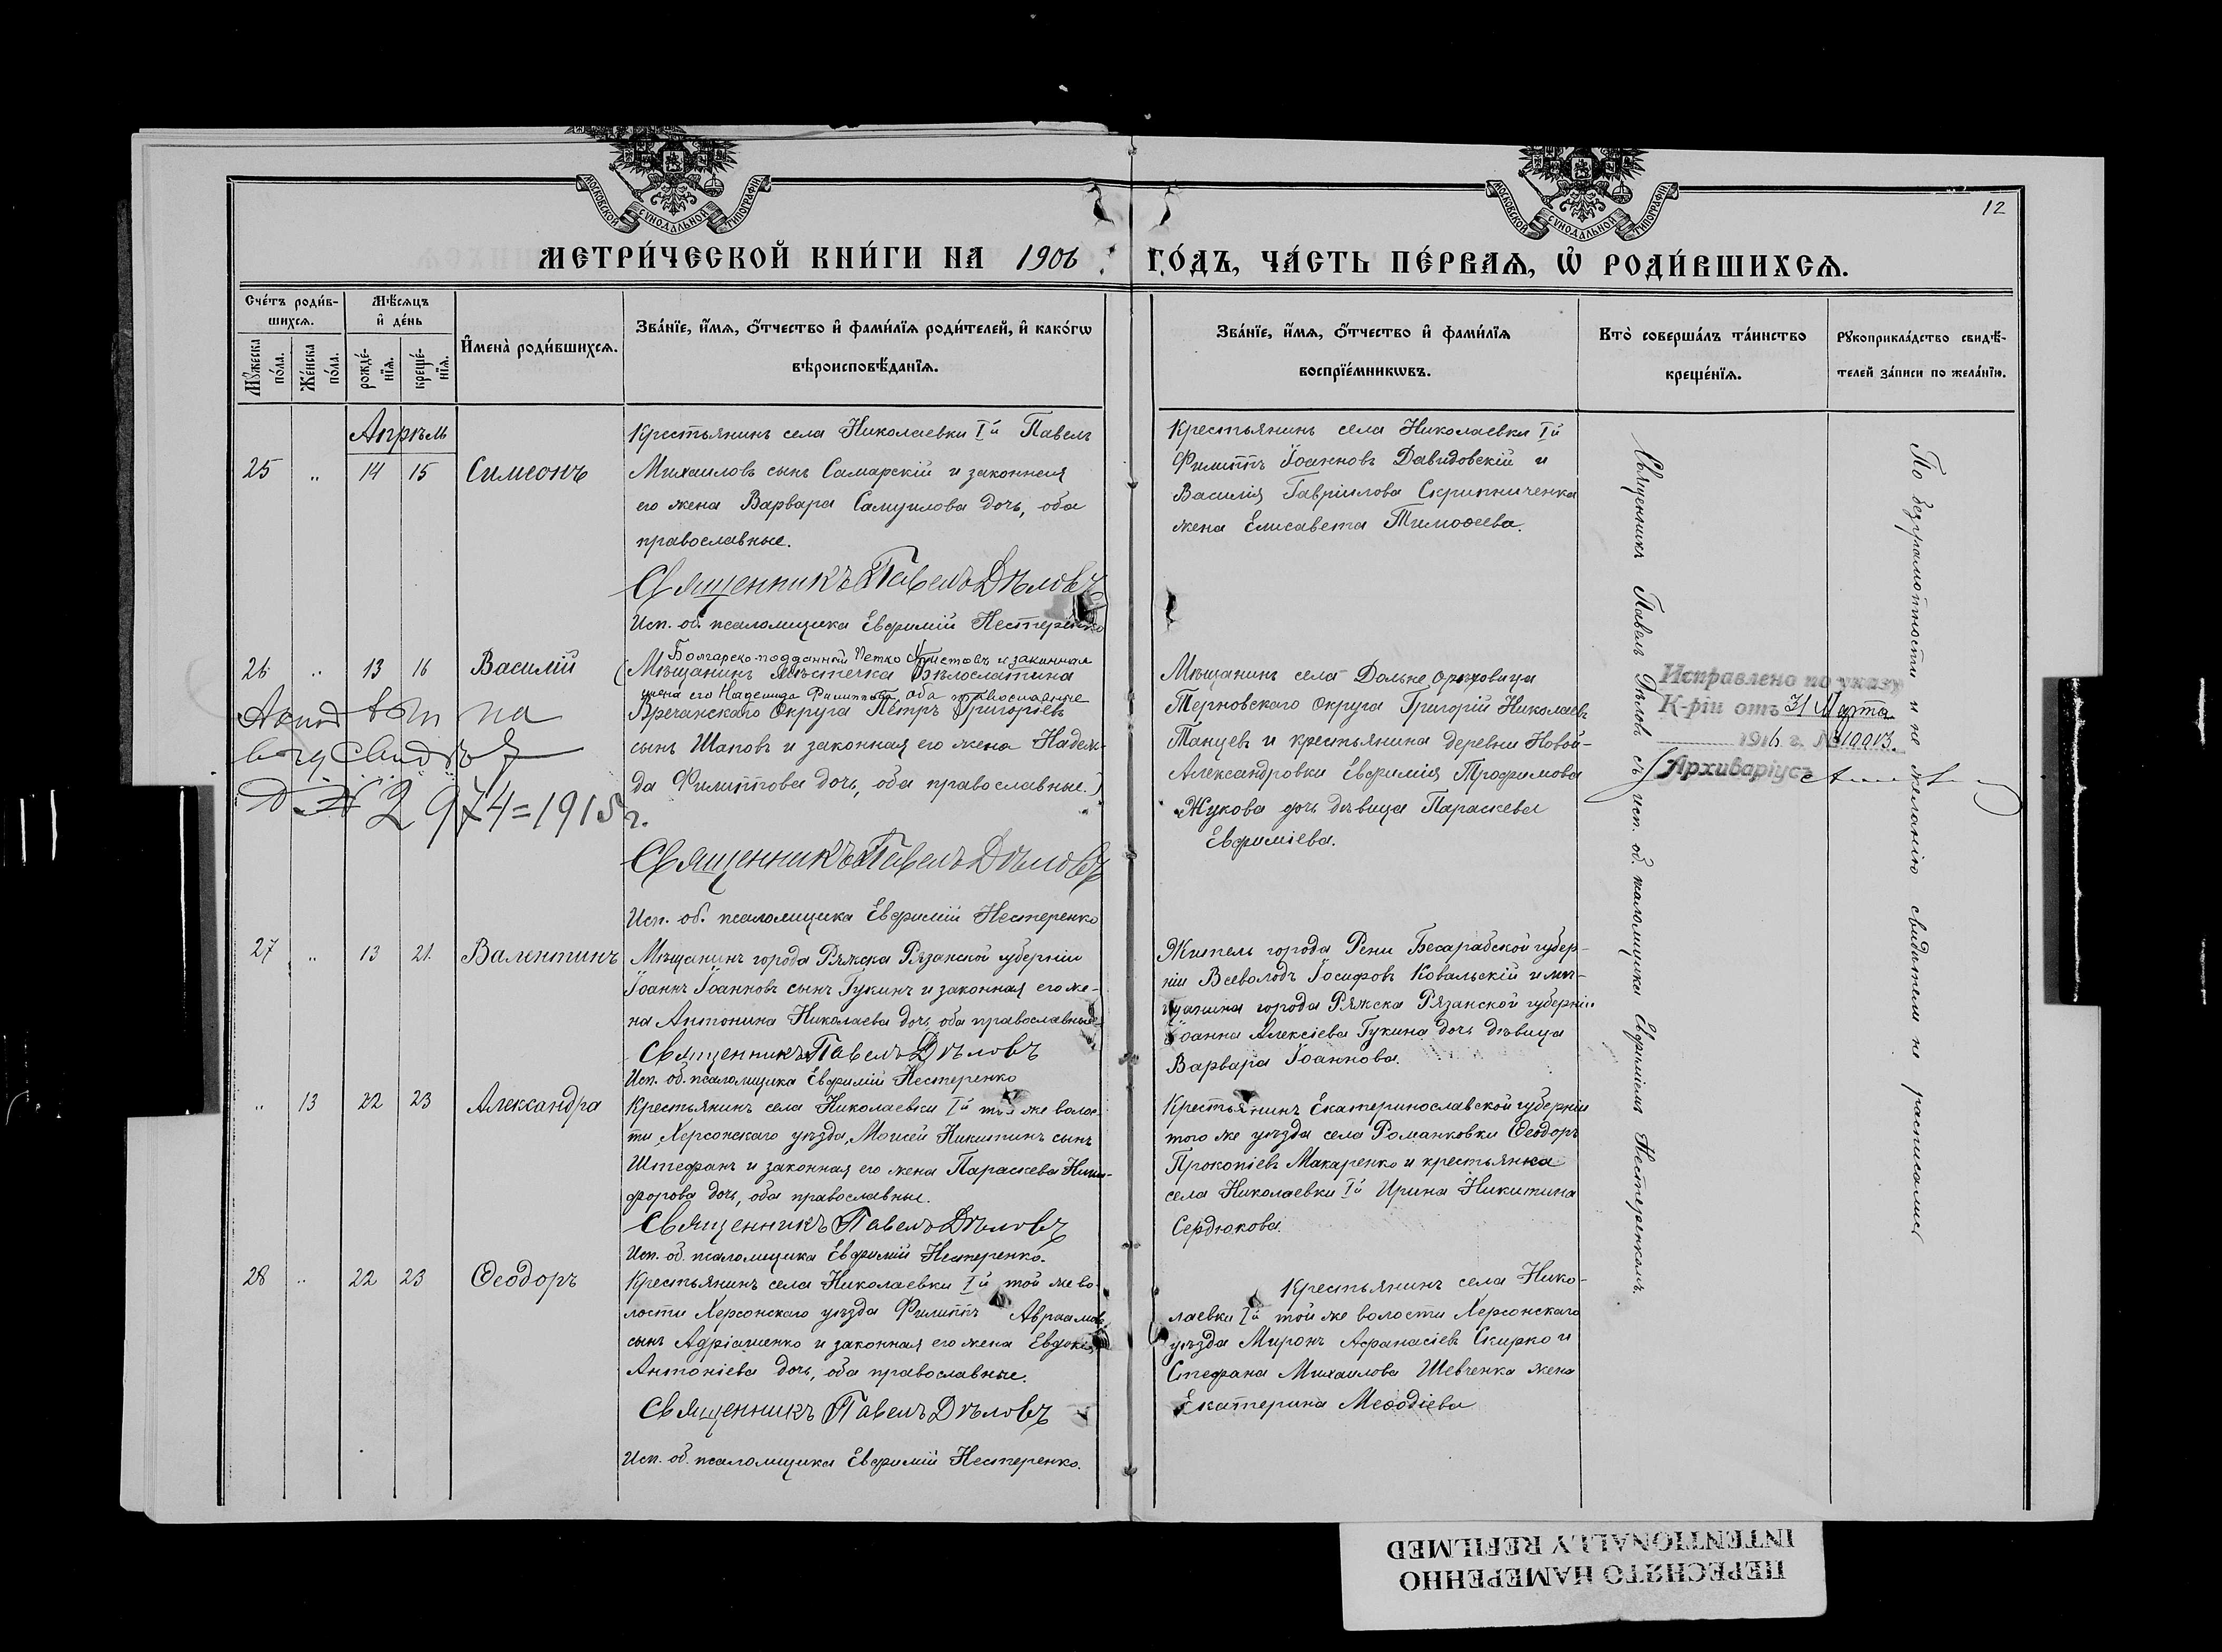 МОСКОВСКОЙ СѴНОДАЛЬНОЙ ТИПОГРАФІИ
МОСКОВСКОЙ СѴНОДАЛЬНОЙ ТИПОГРАФІИ
12
МЕТРИ́ЧЕСКОЙ КНИ́ГИ НА 1906
ГО́ДЪ, ЧА́СТЬ ПЕ́РВАЯ, Ѡ РОДИ́ВШИХСЯ.
Сче́тъ роди́в-
шихсѧ.
Мѣ́сѧцъ
и де́нь
Мꙋ́жеска по́ла.
Же́нска по́ла.
рожде́-нїѧ.
креще́-нїѧ.
И҆мена̀ роди́вшихсѧ.
Зва́нїе, и҆́мѧ, ѻ҆́тчество и҆ фами́лїѧ роди́телей, и҆ како́гѡ
вѣроисповѣ́данїѧ.
Зва́нїе, и҆́мѧ, ѻ҆́тчество и҆ фами́лїѧ
воспрїе́мникѡвъ.
Кто̀ соверша́лъ та́инство
креще́нїѧ.
Рꙋкоприкла́дство свидѣ́-
телей за́писи по жела́нїю.
Апрѣль
25 " 14 15 Симеонъ
Крестьянинъ села Николаевки Iй Павелъ
Михаиловъ сынъ Самарскій и законная
его жена Варвара Самуилова дочь, оба
православные.
Священникъ Павелъ Дѣловъ
Исп. об. псаломщика Евфимій Нестеренко
Крестьянинъ села Николаевки Iй
Филиппъ Іоанновъ Давидовскій и
Василія Гавріилова Скрипниченка
жена Елисавета Тимоѳеева.
26 " 13 16 Василій
Болгарско-подданный Петко Христовъ и законная
(Мѣщанинъ мѣстечка Бѣлослатина
жена его Надежда Филиппова оба православные
Врачанскаго Округа Петръ Григоріевъ
сынъ Шаповъ и законная его жена Надеж-
да Филиппова дочь, оба православные.)
Священникъ Павелъ Дѣловъ
Исп. об. псаломщика Евфимій Нестеренко
2974=1915 г.
Мѣщанинъ села Дольне Орѣховица
Терновскаго Округа Григорій Николаевъ
Танцевъ и крестьянина деревни Новой-
Александровки Евфимія Трофимова
Жукова дочь дѣвица Параскева
Евфиміева.
Исправлено по указу
К-ріи отъ 31 Марта
1916 г. № 10013.
Архиваріусъ
27 " 13 21. Валентинъ
Мѣщанинъ города Ряжска Рязанской губерніи
Іоаннъ Іоанновъ сынъ Гукинъ и законная его же-
на Антонина Николаева дочь оба православные
Священникъ Павелъ Дѣловъ
Исп. об. псаломщика Евфимій Нестеренко
Житель города Рени Бесарабской губер-
ніи Всеволодъ Іосифовъ Ковальскій и мѣ-
щанина города Ряжска Рязанской губерніи
Іоанна Алексіева Гукина дочь дѣвица
Варвара Іоаннова.
" 13 22 23 Александра
Крестьянинъ села Николаевки Iй той же волос-
ти Херсонскаго уѣзда, Моисей Никитинъ сынъ
Штефанъ и законная его жена Параскева Ники-
форова дочь, оба православные.
Священникъ Павелъ Дѣловъ
Исп. об. псаломщика Евфимій Нестеренко.
Крестьянинъ Екатеринославской губерніи
того же уѣзда села Романковки Ѳеодоръ
Прокопіевъ Макаренко и крестьянка
села Николаевки Iй Ирина Никитина
Сердюкова.
28 " 22 23 Ѳеодоръ
Крестьянинъ села Николаевки Iй той же во-
лости Херсонскаго уѣзда Филиппъ Авраамовъ
сынъ Адріашенко и законная его жена Евдокія
Антоніева дочь, оба православные.
Священникъ Павелъ Дѣловъ
Исп. об. псаломщика Евфимій Нестеренко.
Крестьянинъ села Нико-
лаевки Iй той же волости Херсонскаго
уѣзда Миронъ Аѳанасіевъ Скирко и
Стефана Михаилова Шевченка жена
Екатерина Меѳодіева
Священникъ Павелъ Дѣловъ съ исп. об. псаломщика Евфиміемъ Нестеренкомъ.
По безграмотности и не желанію свидѣтели не расписались
ПЕРЕСНЯТО НАМЕРЕННО
INTENTIONALLY REFILMED